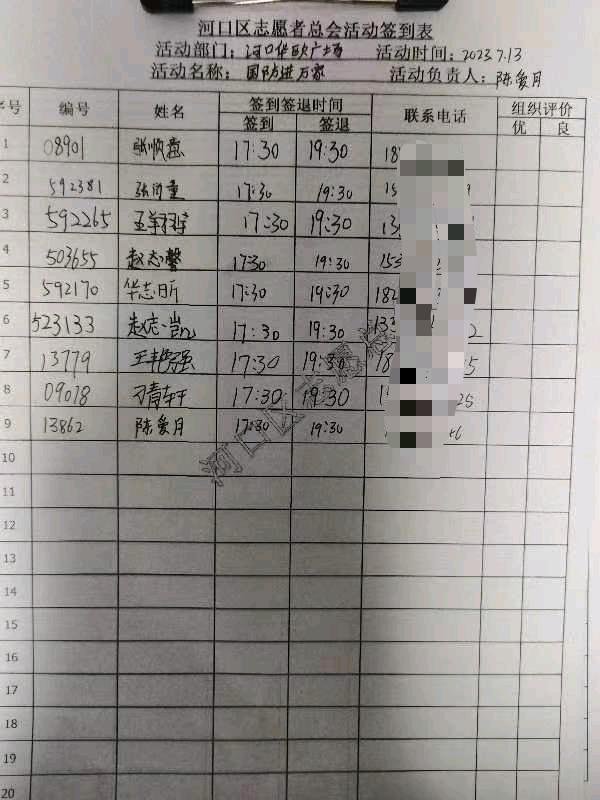 河口区志愿者总会活动签到表
活动部门：河口华联广场 活动时间：2023.7.13
活动名称：国防进万家 活动负责人：陈爱月
序号 编号 姓名 签到签退时间 联系电话 组织评价
签到 签退 优 良
1 08901 张顺意 17:30 19:30 18
2 592381 17:30 19:30 15 9
3 592265 17:30 19:30 13
4 503655 赵志馨 17:30 19:30 153
5 592170 华志昕 17:30 19:30 182
6 523133 赵志凯 17:30 19:30 133 2
7 13779 17:30 19:30 18 5
8 09018 刁青轩 17:30 19:30 1 25
9 13862 陈爱月 17:30 19:30 56
10
11
12
13
14
15
16
17
18
19
20
河口区志愿